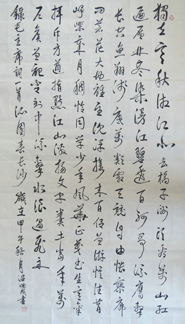 独立寒秋湘江北去橘子洲头看万山红
遍层林尽染漫江碧透百舸争流鹰击
长空鱼翔浅底万类霜天竞自由怅寥廓
问苍茫大地谁主沉浮携来百侣曾游忆往昔
峥嵘岁月稠恰同学少年风华正茂书生意气
挥斥方遒指点江山激扬文字粪土当年万
户侯曾记否到中流击水浪遏飞舟
录毛主席词沁园春长沙 甲午秋月 书